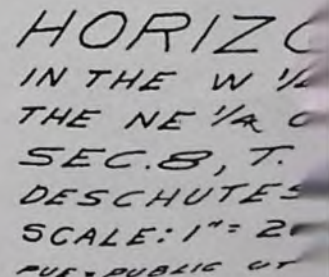 HORIZO
IN THE W 1/2
THE NE 1/4 O
SEC. 8, T.
DESCHUTES
SCALE: 1"= 20
PUE = PUBLIC UT